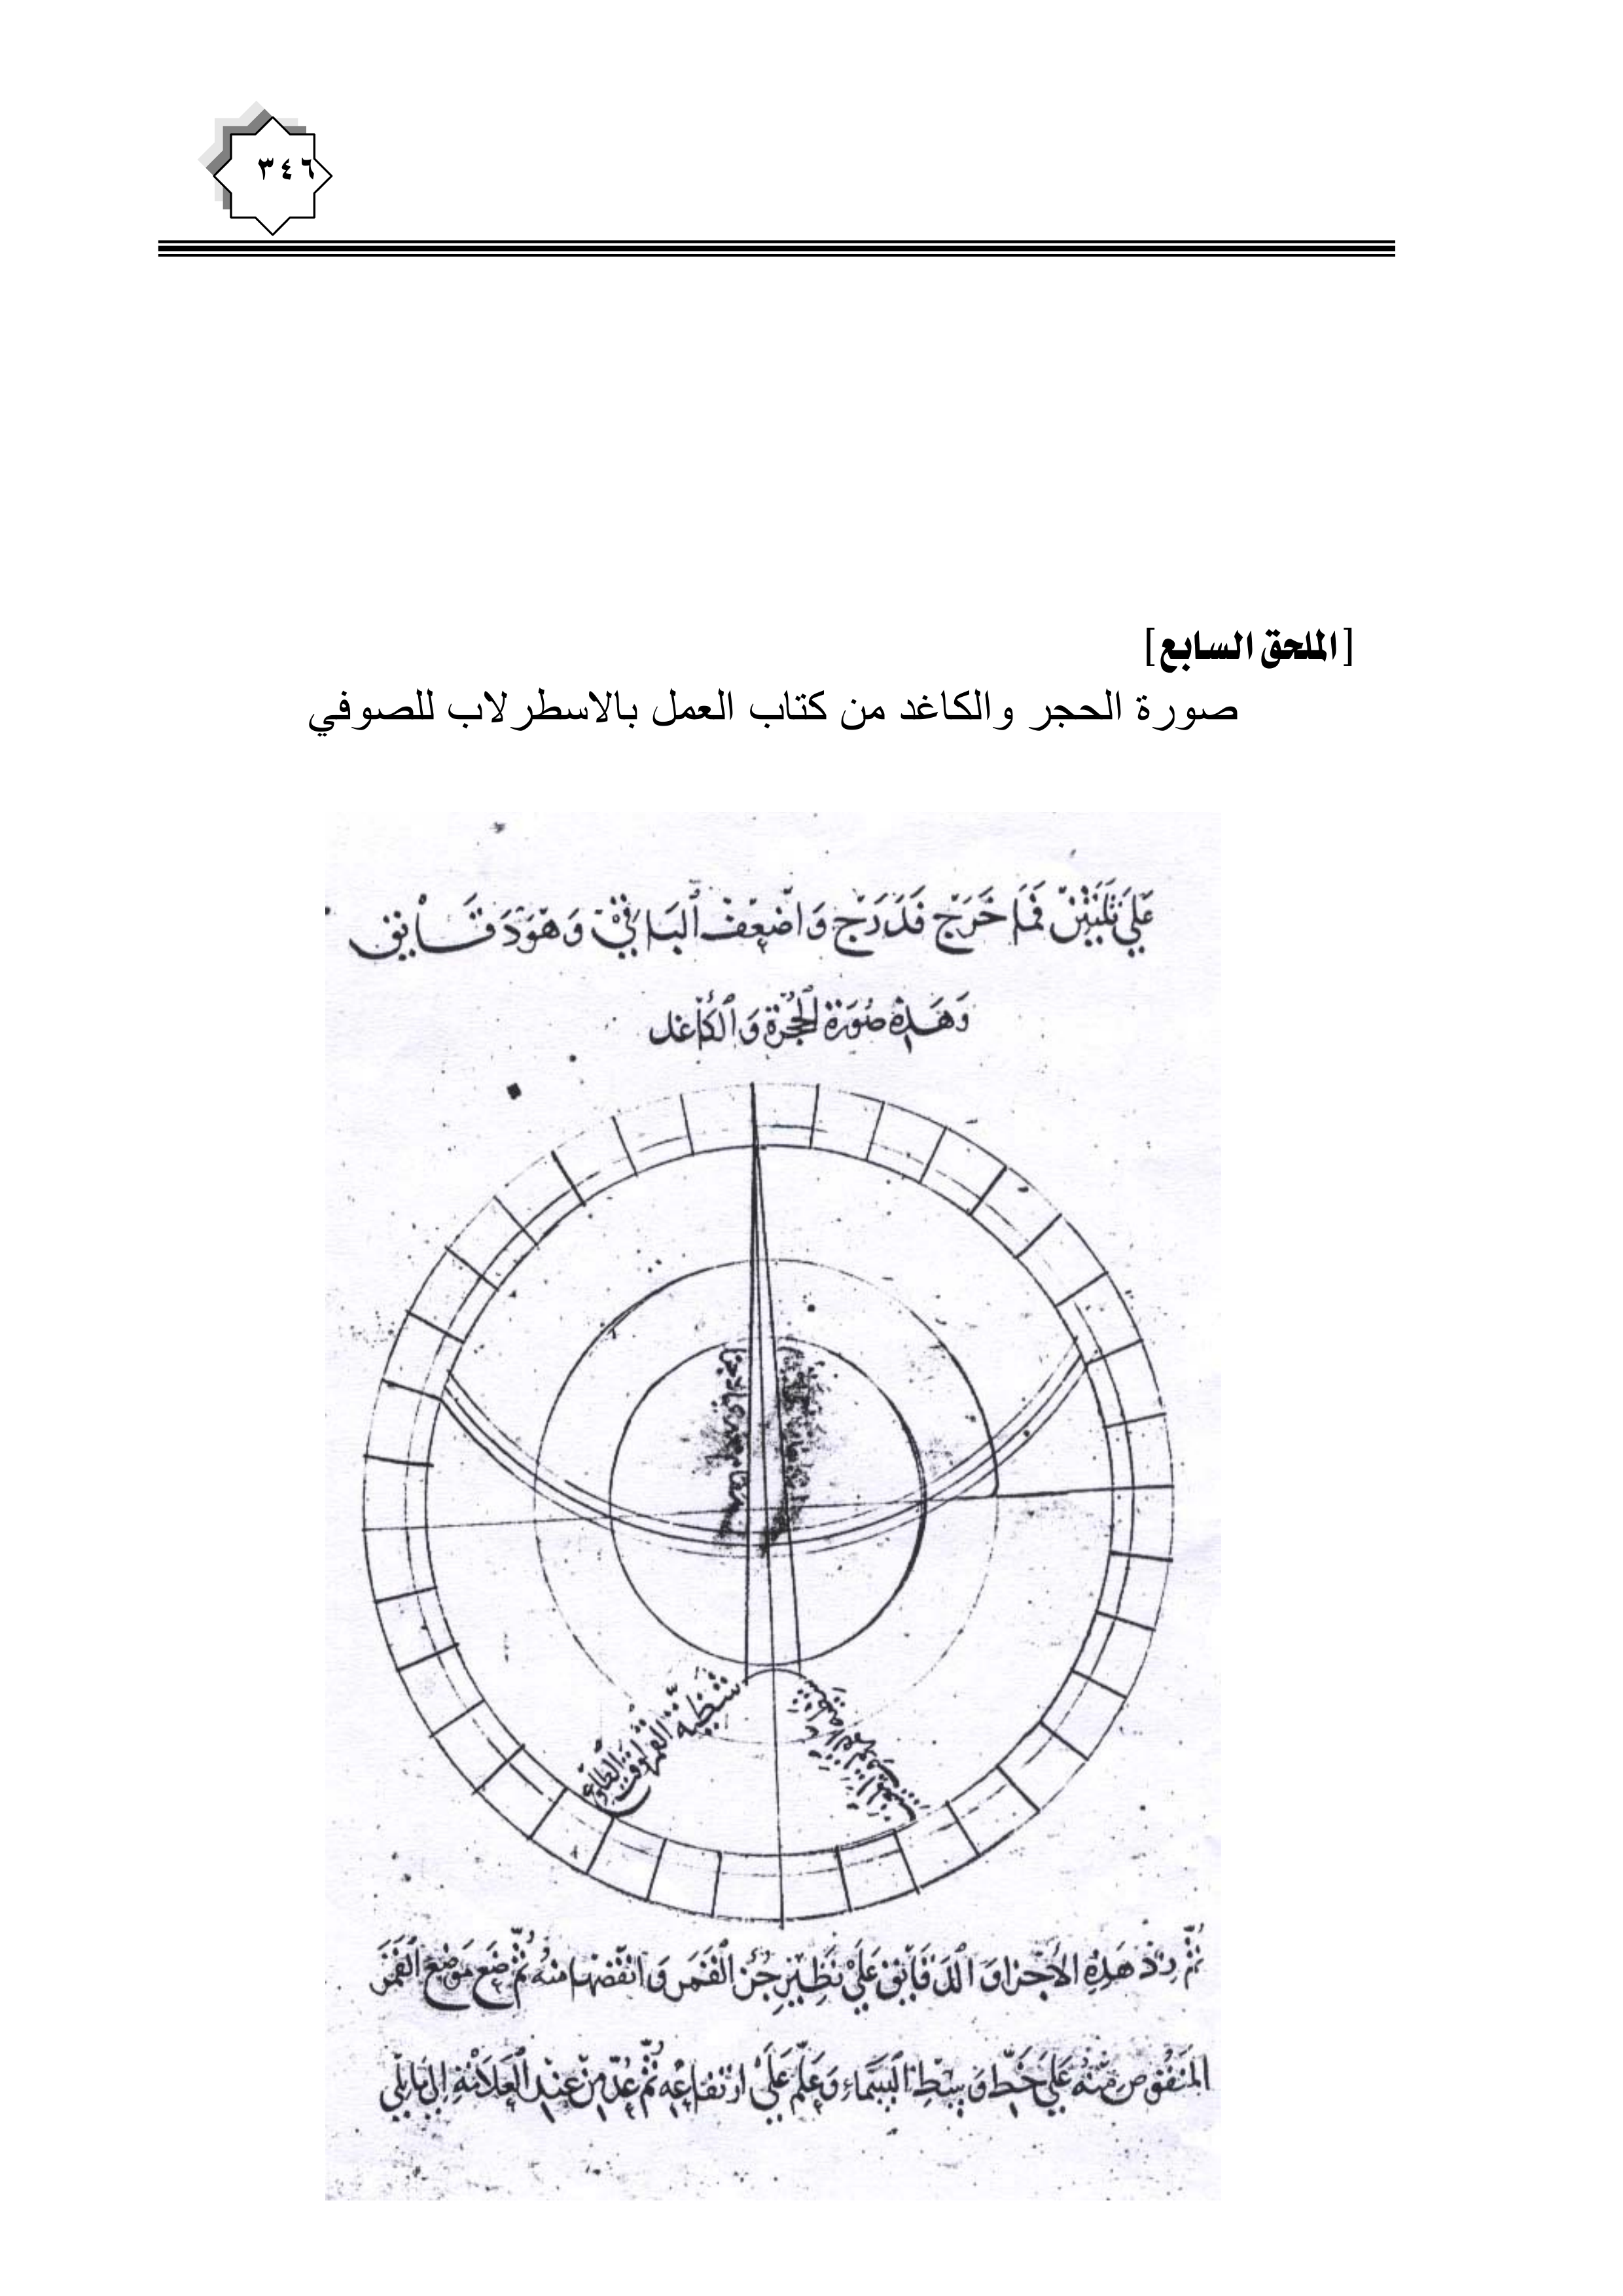 ٣٤٦
[الملحق السابع]
صورة الحجر والكاغد من كتاب العمل بالاسطرلاب للصوفي
عَلَى ثلثين فَمَا خَرَجَ فَدَرَج وَاضعف البَاقي وَهوَ دَقَايق
وَهَذِهِ صُورَة الحجرة وَالكاغد
شظية القمر لوقت الطالع
ثُمّ زِدْ هَذِهِ الأجزاوَ الدَقَايق عَلَى نَظِيرِ جُزء القَمَر وَ انقصها منه ثُمّ ضَع مَوضع القَمَر
المَنقُوص منه عَلَى خَطّ وَسط السَّمَاء وَعَلّم عَلَى ارتفاعه ثُمّ عُدّ من عِندِ العَلاَمَة الى مَا يلي